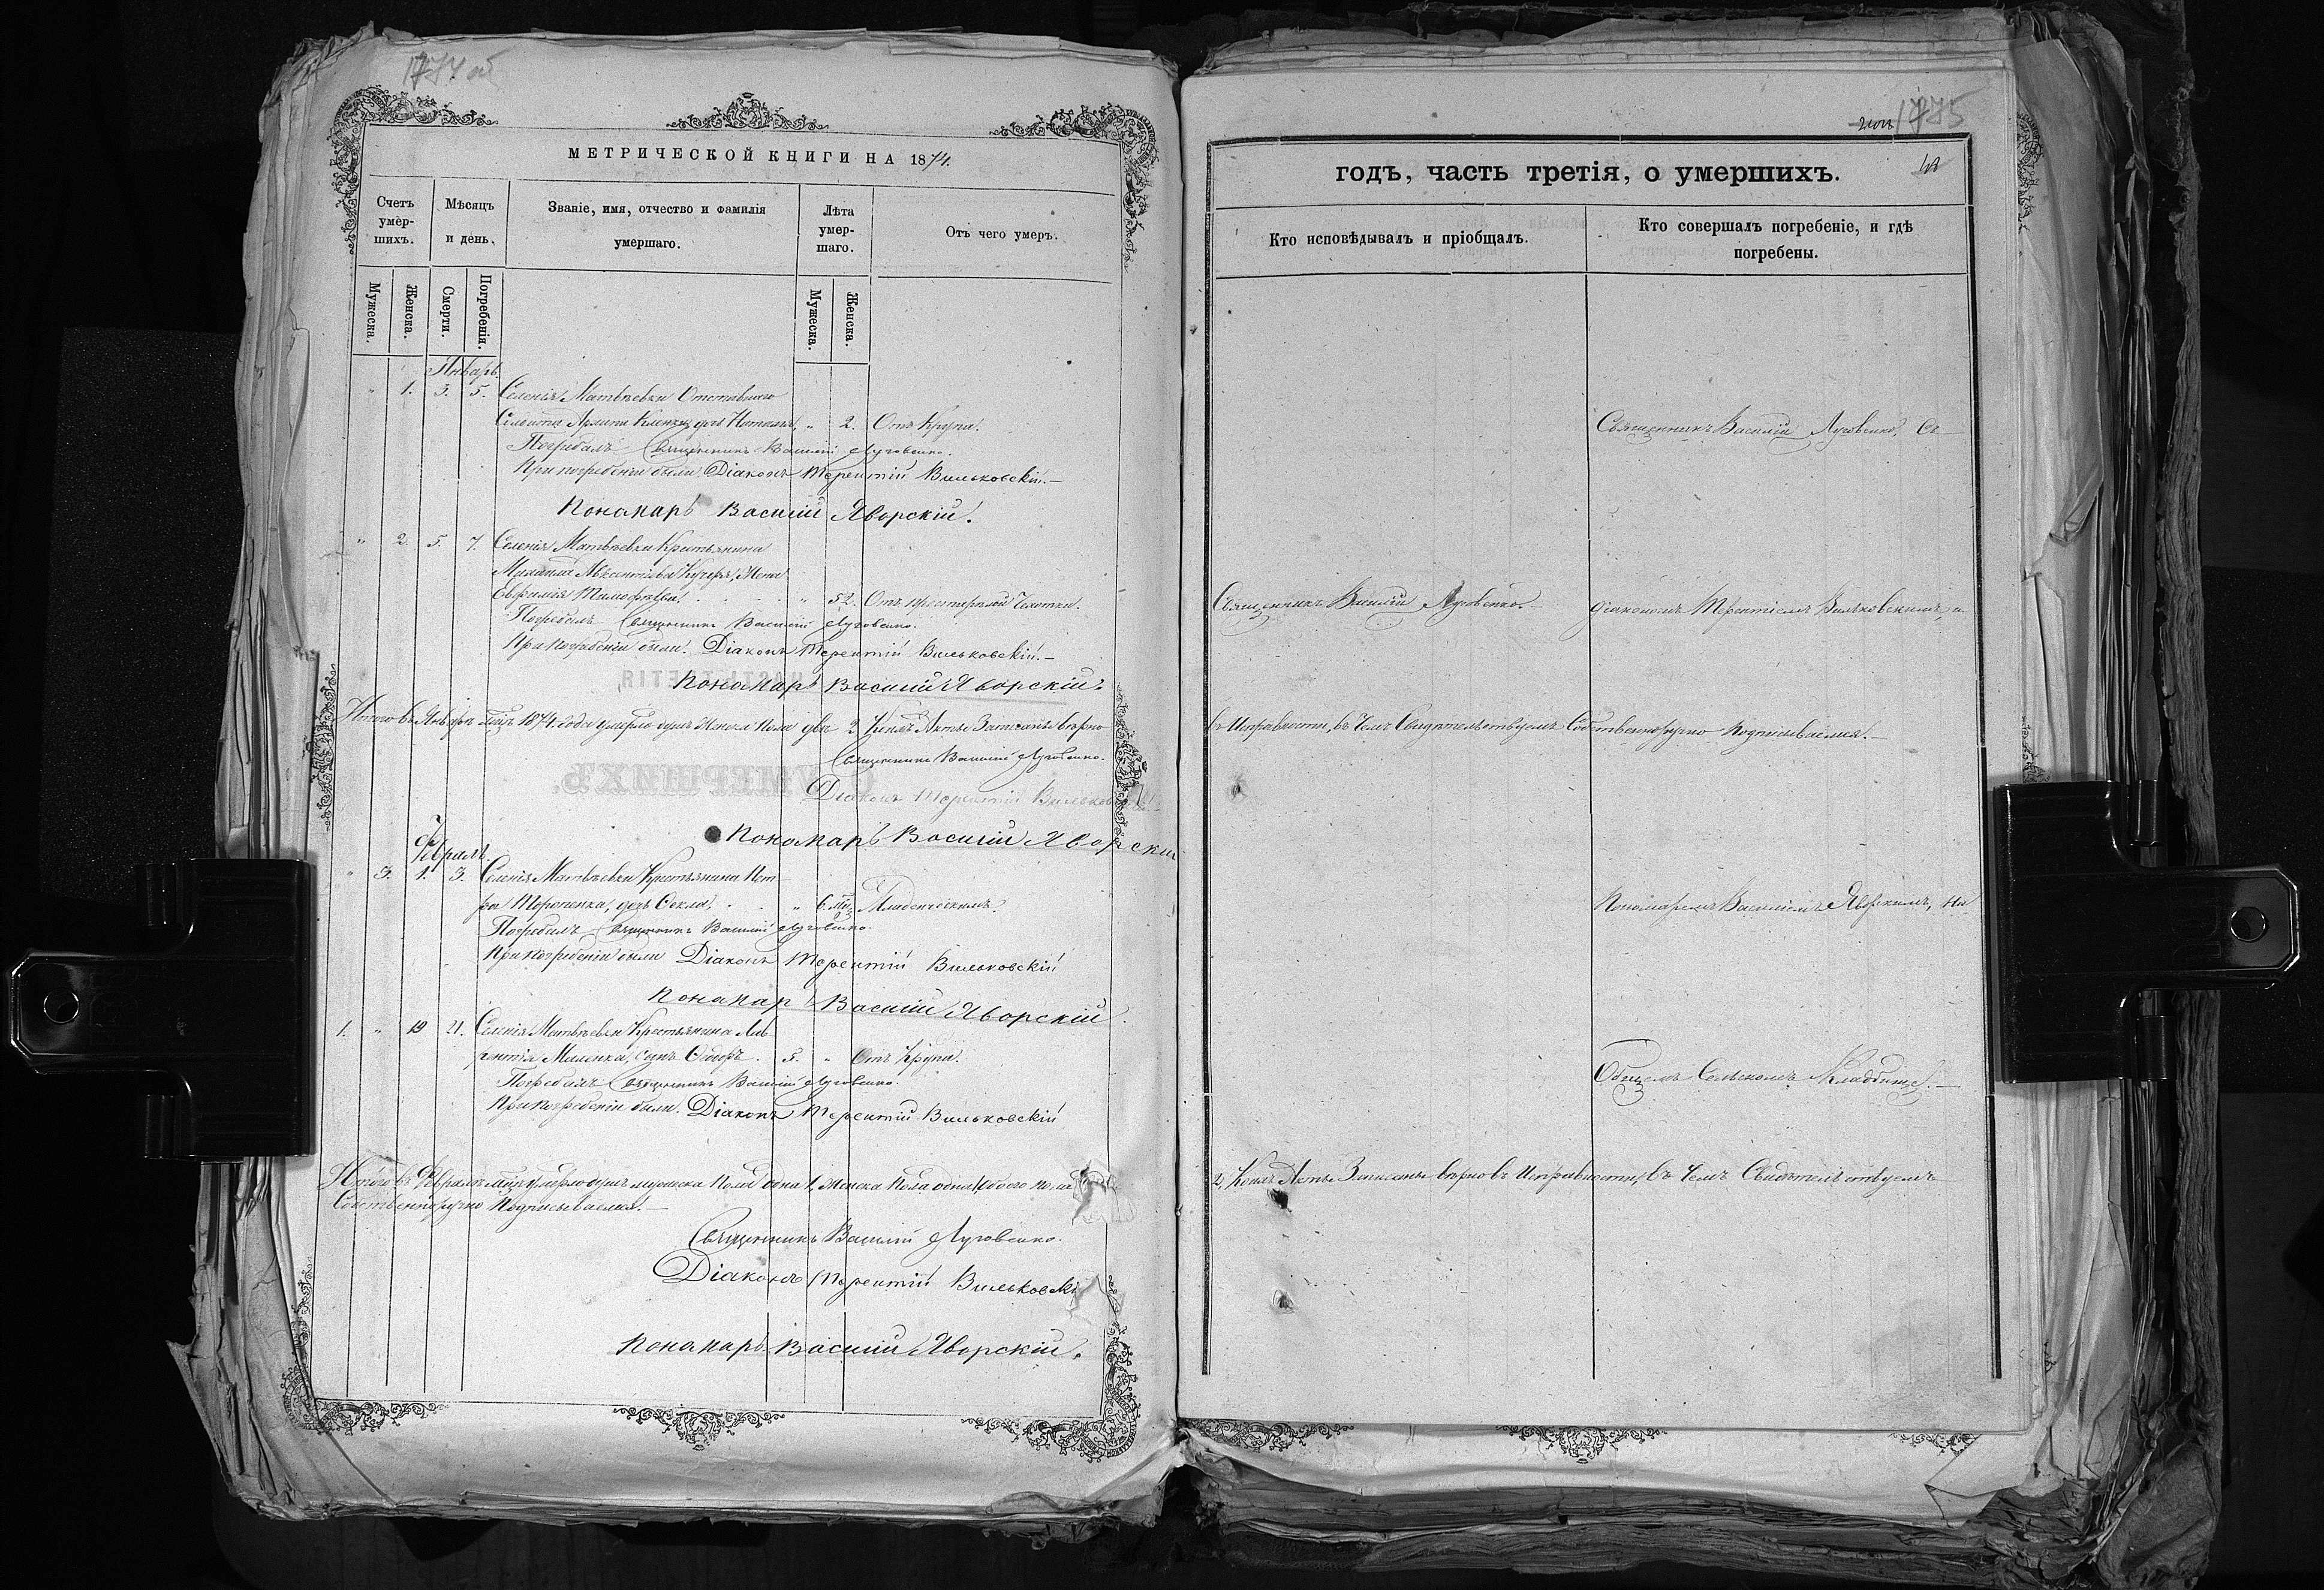 1774 об
МЕТРИЧЕСКОЙ КНИГИ НА 1874.
Счетъ умер-шихъ.
Мѣсяцъ и день.
Званіе, имя, отчество и фамилія умершаго.
Лѣта умер-шаго.
Отъ чего умеръ.
Мужеска.
Женска.
Смерти.
Погребенія.
Мужеска.
Женска.
Январь
" 1. 3. 5. Селенія Матвѣевки Отставнаго
Солдата дочь " 2. Отъ Крупа.
Погребалъ Священникъ Василій Луговенко.
При погребеніи были: Діаконъ Терентій Вильковскій.—
Пономарь Василій Яворскій.
" 2. 5. 7. Селенія Матвѣевки Крестьянина
Михаила Авксентіева Кучера, Жена
Евфимія Тимофѣева. " 52. Отъ чахотки.
Погребалъ Священникъ Василій Луговенко.
При погребеніи были: Діаконъ Терентій Вильковскій.—
Пономарь Василій Яворскій.
Итого въ Январѣ мцѣ 1874 года умерло душъ Женска Пола двѣ 2 Записаны вѣрно
Священникъ Василій Луговенко.
Діаконъ Терентій Вильковскій
Пономарь Василій Яворскій
Февраль.
" 3. 1. 3. Селенія Матвѣевки Крестьянина Пет-
ра дочь Ѳекла, " 6 мц. Младенческимъ.
Погребалъ Священникъ Василій Луговенко.
При погребеніи были Діаконъ Терентій Вильковскій
Пономарь Василій Яворскій.
1. " 19 21. Селенія Матвѣевки Крестьянина Лав-
рентія сынъ Ѳедоръ. 5. " Отъ Крупа.
Погребалъ Священникъ Василій Луговенко.
При погребеніи были. Діаконъ Терентій Вильковскій
Итого въ Февралѣ мцѣ умерло душъ мужеска Пола одна 1, Женска Пола одна 1, Обоего пола
Собственноручно Подписываемся.—
Священникъ Василій Луговенко.
Діаконъ Терентій Вильковскі
Пономарь Василій Яворскій.
1775
годъ, часть третія, о умершихъ.
Кто исповѣдывалъ и пріобщалъ.
Кто совершалъ погребеніе, и гдѣ погребены.
Священникъ Василій Луговенко, Съ
Священникъ Василій Луговенко.—
діакономъ Терентіемъ Вильковскимъ, и
въ Исправности, въ чемъ Свидѣтельствуемъ Собственноручно Подписываемся.—
Пономаремъ Василіемъ Яворскимъ, На
Общемъ Сельскомъ Кладбищѣ.—
2, Записаны вѣрно въ Исправности, въ чемъ Свидѣтельствуемъ